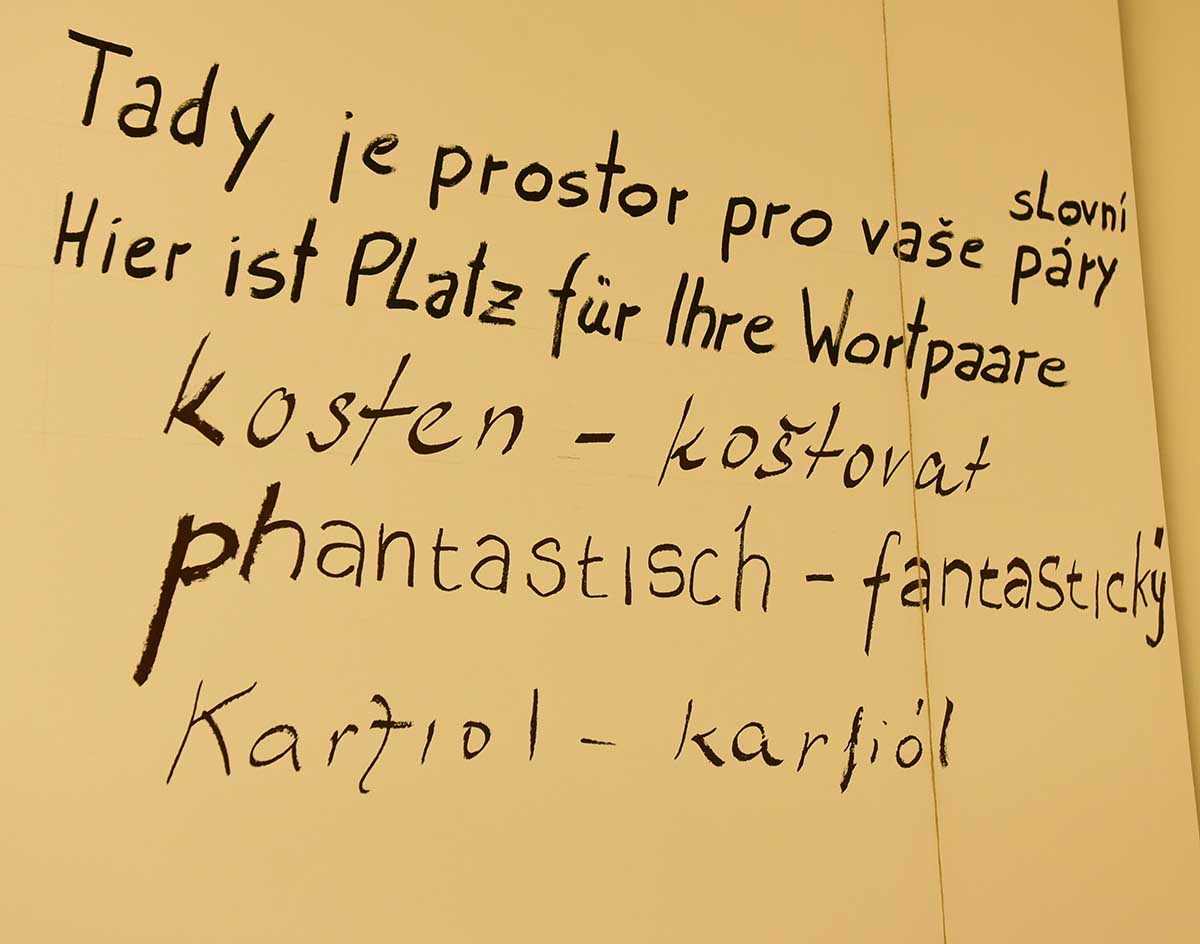 Tady je prostor pro vaše slovní páry
Hier ist Platz für Ihre Wortpaare
kosten - koštovat
phantastisch - fantastický
Karfiol - karfiól